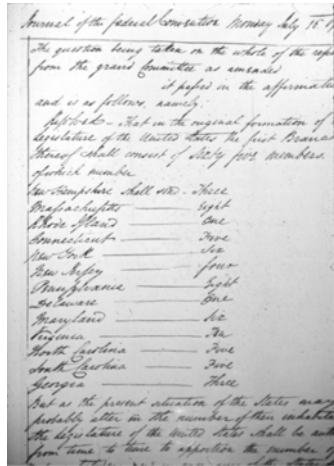 Journal of the federal Convention Monday July 16. 17
The question being taken on the whole of the repo
from the grand Committee as amended
it passed in the affirmative
and is as follows, namely.
Resolved — That in the original formation of t
Legislature of the United States the first Branch
thereof shall consist of Sixty five members
of which number
New Hampshire shall send Three
Massachusetts Eight
Rhode Island One
Connecticut Five
New York Six
New Jersey four
Pennsylvania Eight
Delaware One
Maryland Six
Virginia Ten
North Carolina Five
South Carolina Five
Georgia Three
But as the present situation of the States may
probably alter in the number of their inhabitan
the Legislature of the United States shall be auth
from time to time to apportion the number